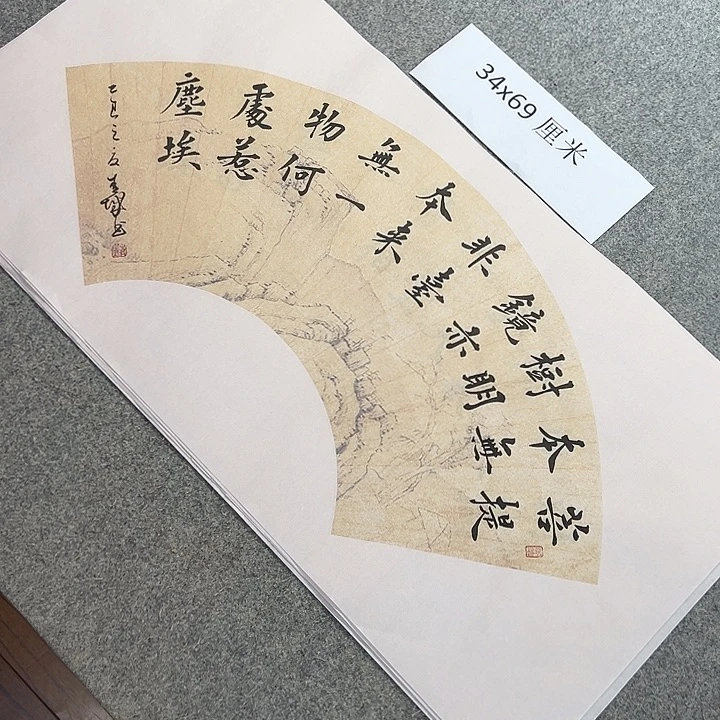 菩提
本無
樹明
鏡亦
非臺
本来
無一
物何
處惹
塵埃
之夏
34x69 厘米